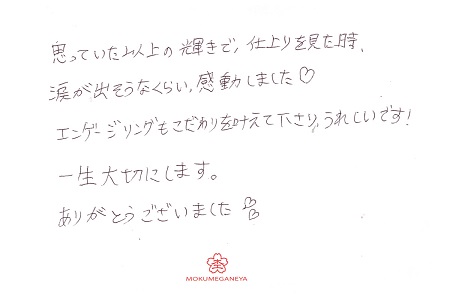 思っていた以上の輝きで、仕上りを見た時、
涙が出そうなくらい、感動しました♡
エンゲージリングもこだわりを叶えて下さり、うれしいです！
一生大切にします。
ありがとうございました
MOKUMEGANEYA